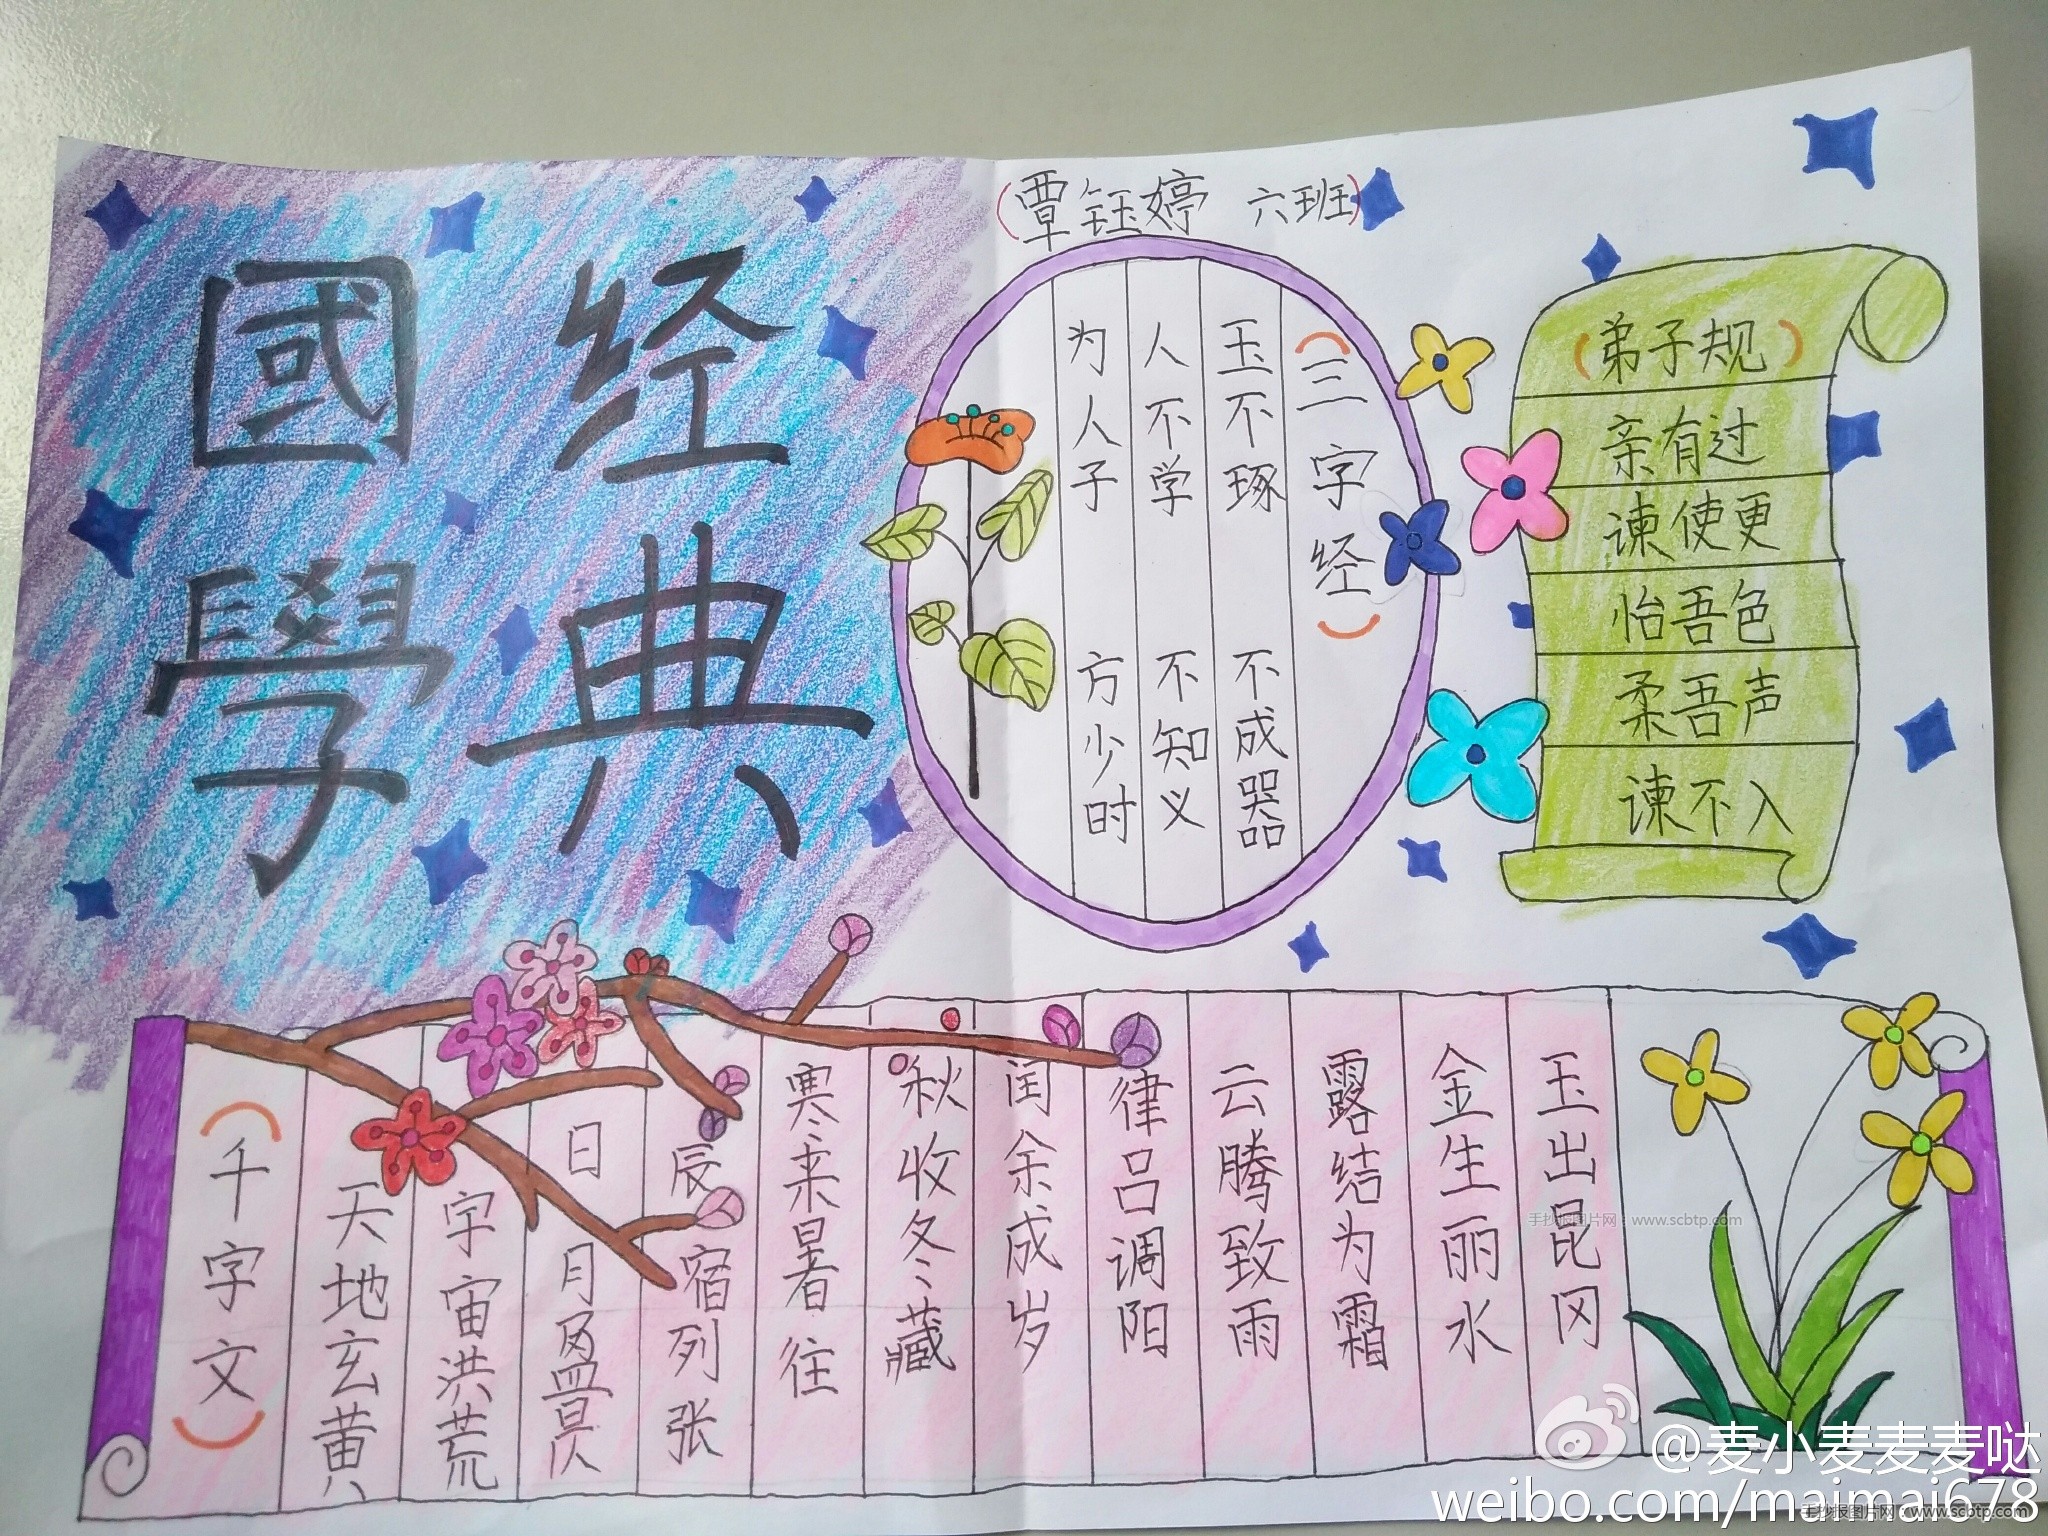 國學
经典
(覃钰婷 六班)
(三字经)
玉不琢 不成器
人不学 不知义
为人子 方少时
(弟子规)
亲有过
谏使更
怡吾色
柔吾声
谏不入
(千字文)
天地玄黄
字宙洪荒
日月盈昃
辰宿列张
寒来暑往
秋收冬藏
闰余成岁
律吕调阳
云腾致雨
露结为霜
金生丽水
玉出昆冈
手抄报图片网：www.scbtp.com
@麦小麦麦麦哒
weibo.com/maimai678
手抄报图片网：www.scbtp.com